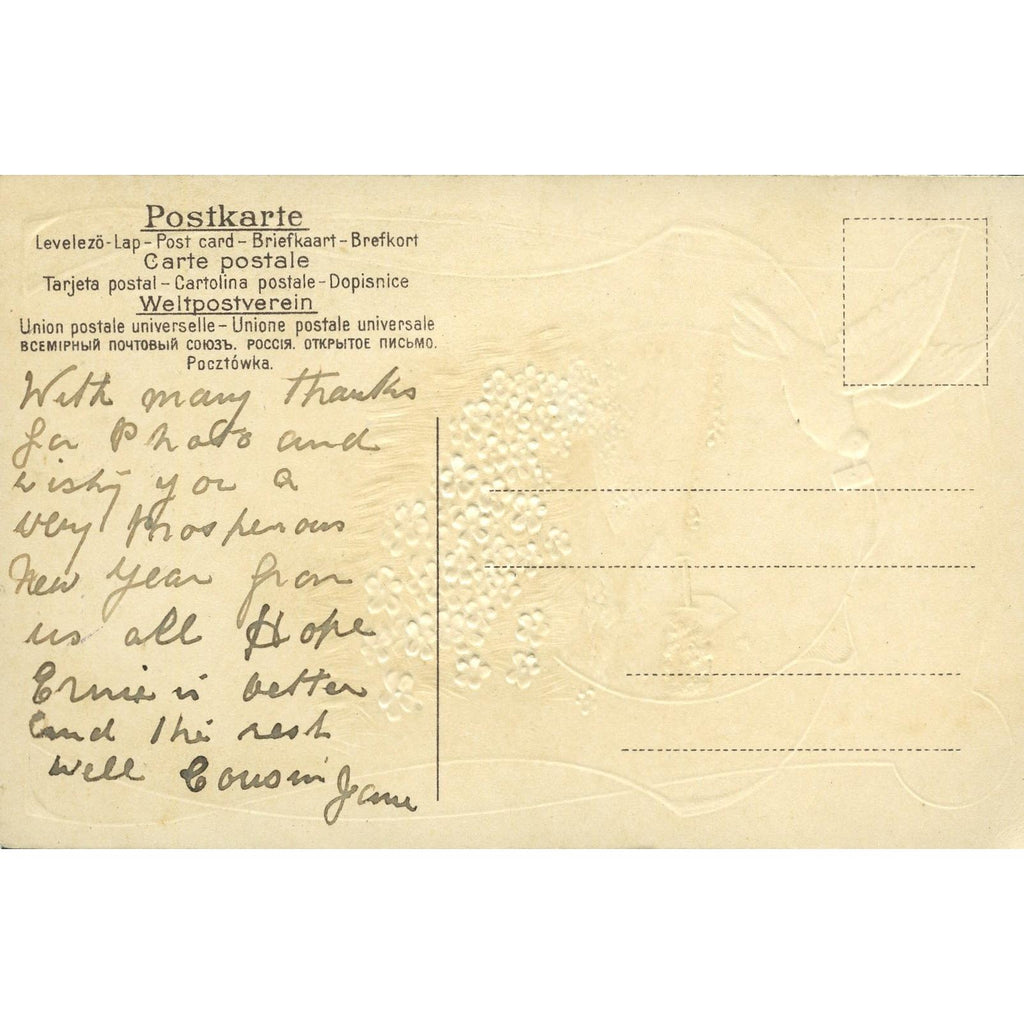 Postkarte
Levelező-Lap – Post card – Briefkaart – Brefkort
Carte postale
Tarjeta postal – Cartolina postale – Dopisnice
Weltpostverein
Union postale universelle – Unione postale universale
ВСЕМІРНЫЙ ПОЧТОВЫЙ СОЮЗЪ. РОССІЯ. ОТКРЫТОЕ ПИСЬМО.
Pocztówka.
With many thanks
for Photo and
wishg you a
very Prosperous
New Year from
us all Hope
Ernie is better
and the rest
well Cousin Jane